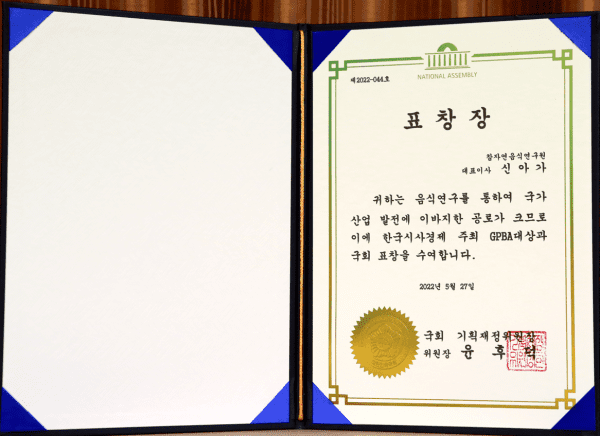 NATIONAL ASSEMBLY
제2022-044호
표 창 장
참자연음식연구원
대표이사 신 아 가
귀하는 음식연구를 통하여 국가
산업 발전에 이바지한 공로가 크므로
이에 한국시사경제 주최 GPBA대상과
국회 표창을 수여합니다.
2022년 5월 27일
국회 기획재정위원장
위원장 윤 후 덕